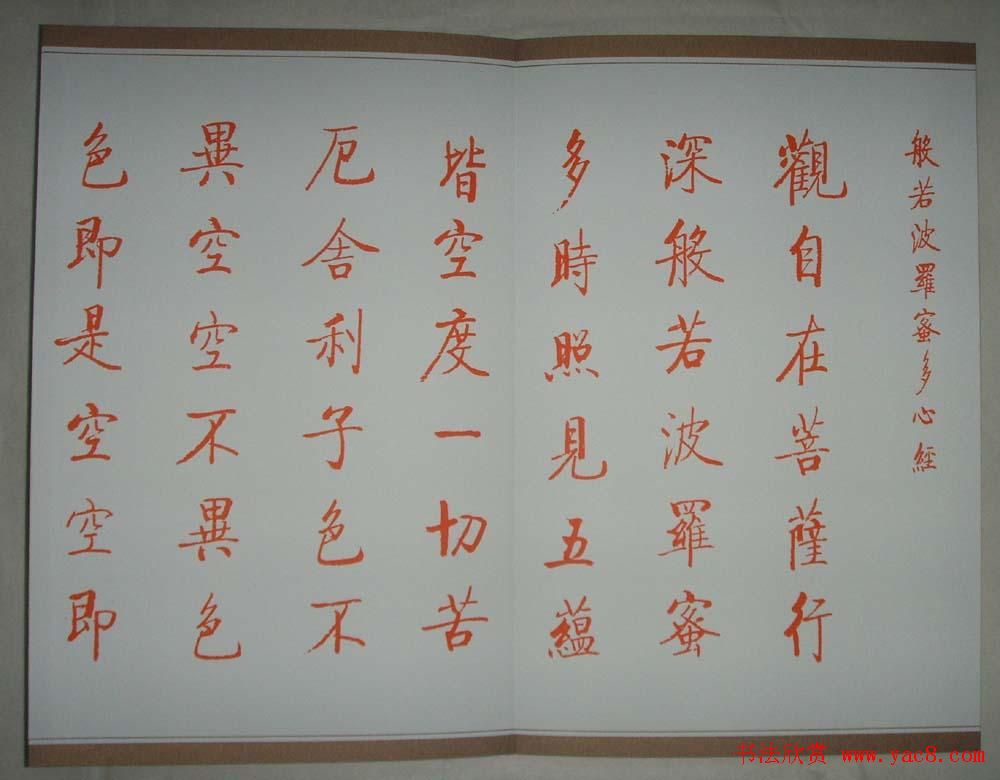 般若波羅蜜多心經
觀自在菩薩行
深般若波羅蜜
多時照見五蘊
皆空度一切苦
厄舍利子色不
異空空不異色
色即是空空即
书法欣赏 www.yac8.com